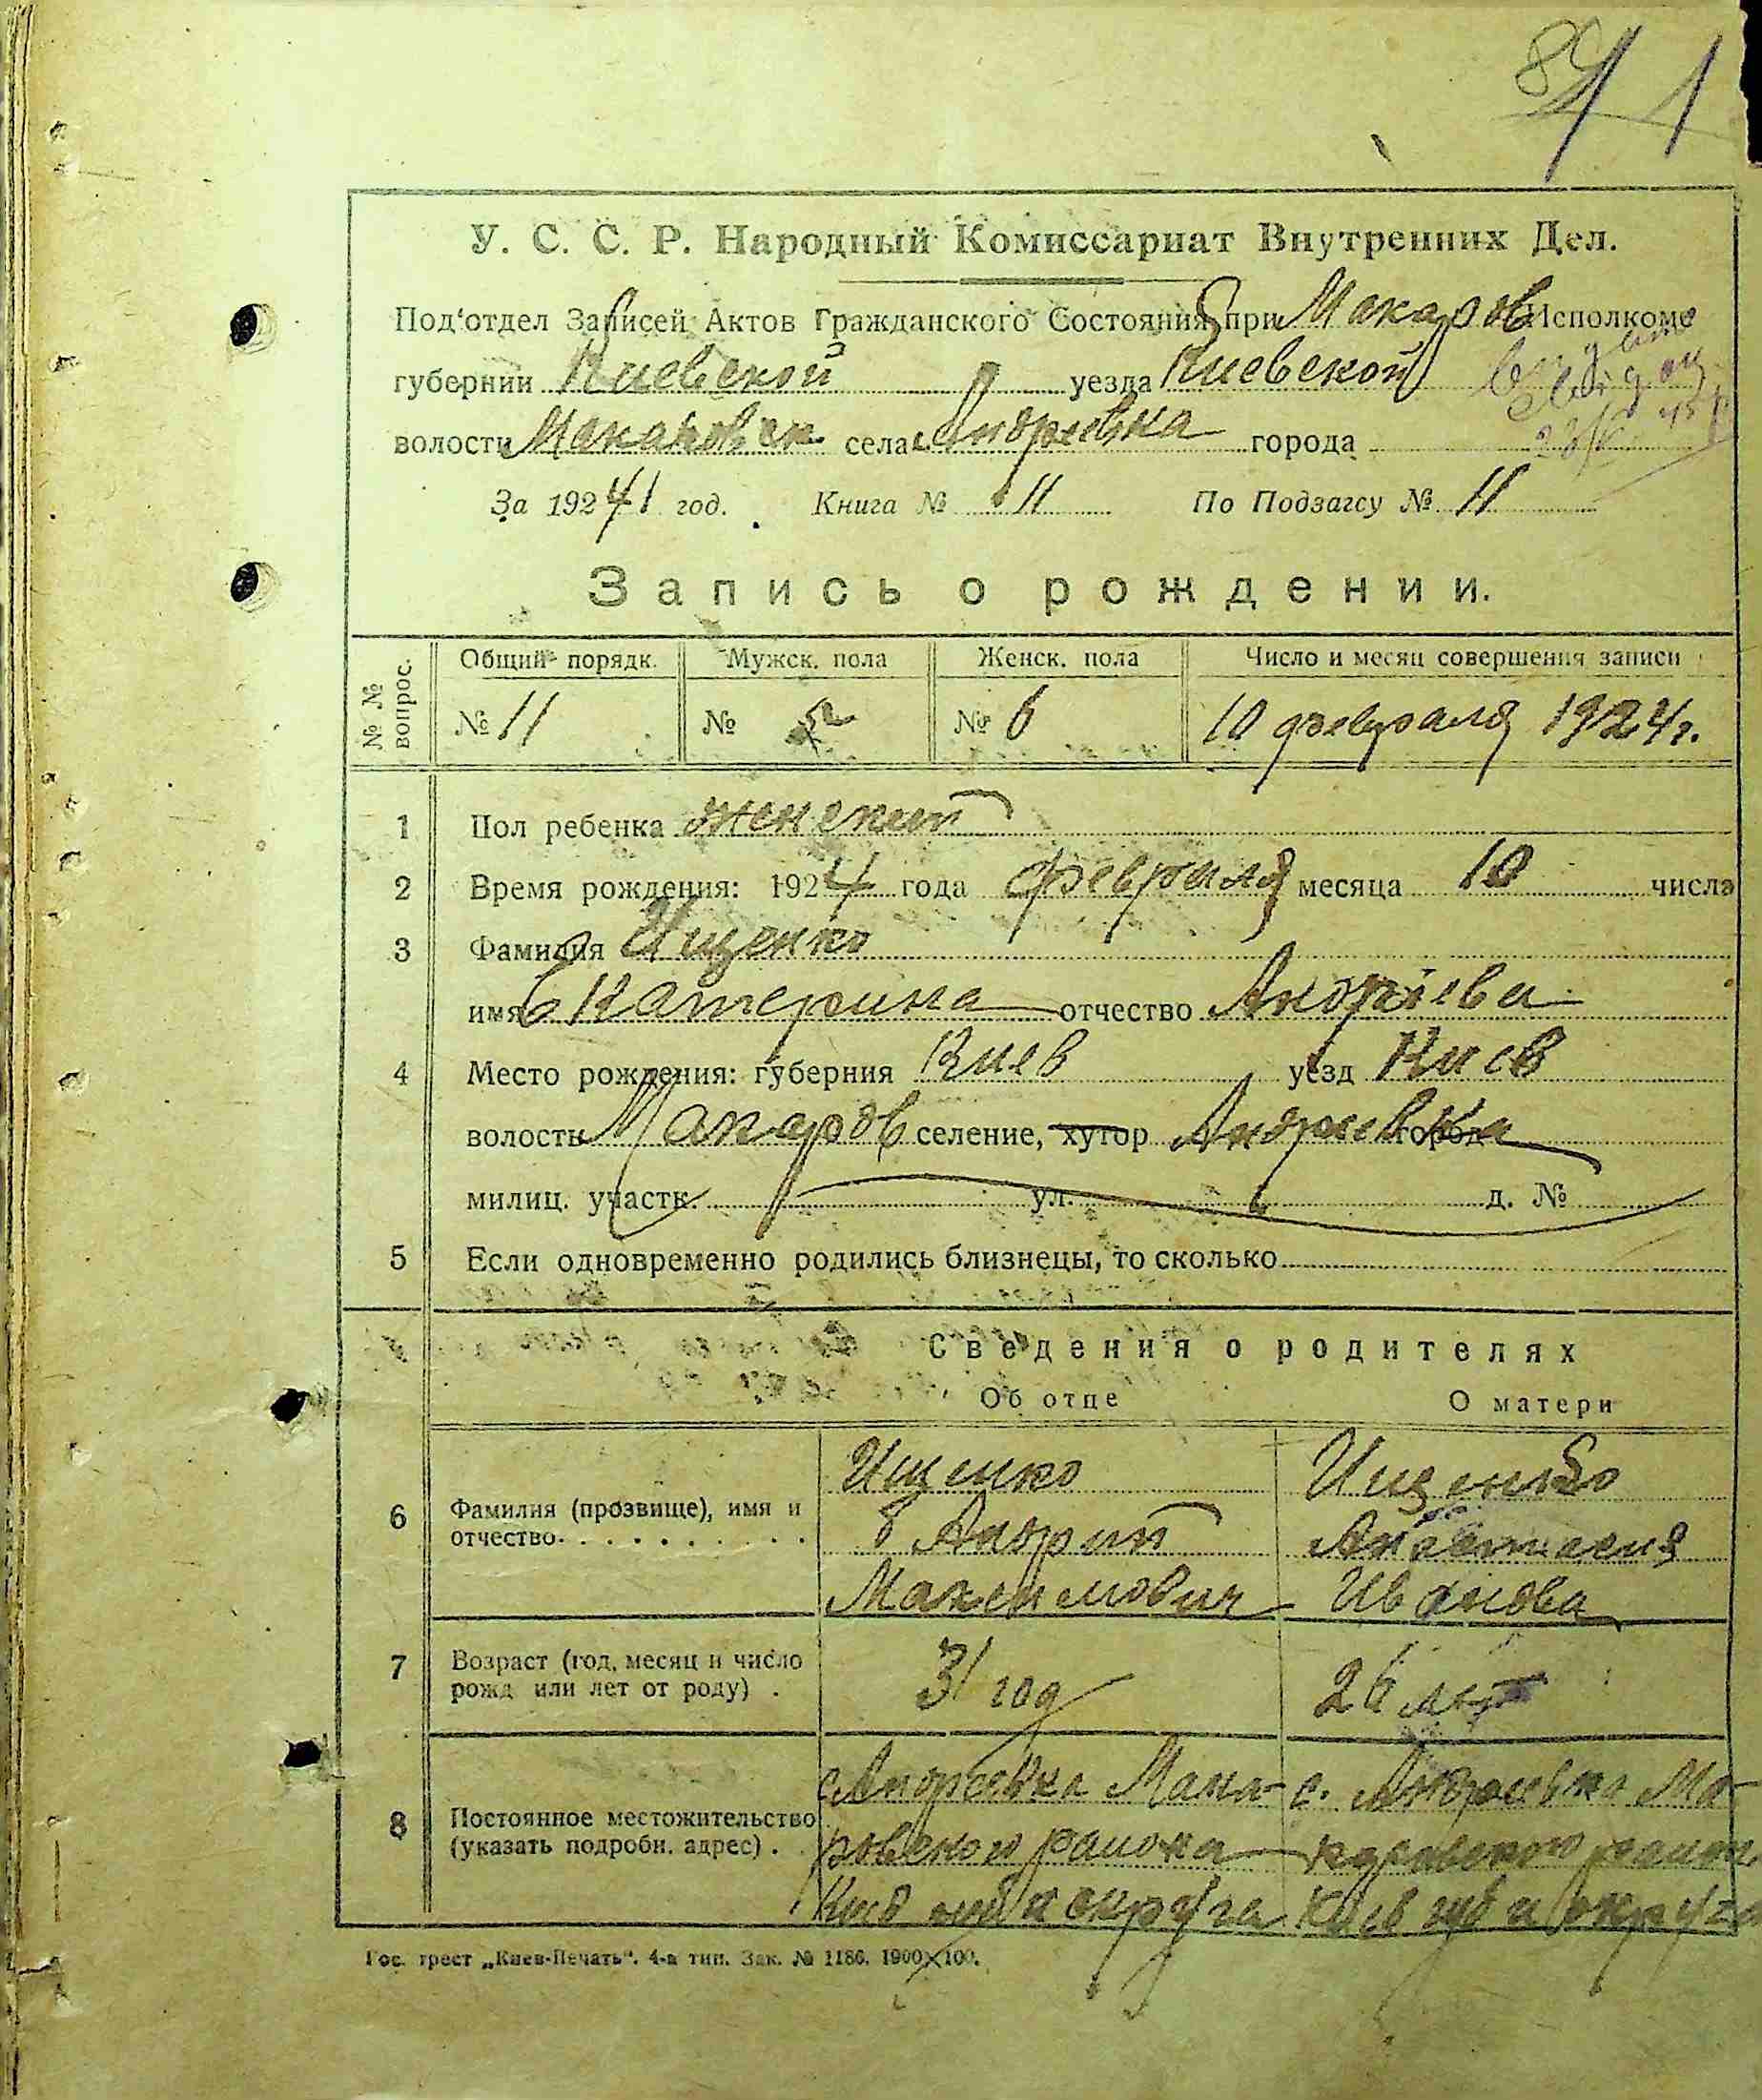 1
У. С. С. Р. Народный Комиссариат Внутренних Дел.
Под'отдел Записей Актов Гражданского Состояния при Макаров Исполкоме
губернии Киевской уезда Киевской
волости Макаровск села Андреевка города
За 1924 год. Книга № 11 По Подзагсу № 11
Запись о рождении.
№ № вопрос. Общий порядк. Мужск. пола Женск. пола Число и месяц совершения записи
№ 11 № № 6 10 февраля 1924 г.
1 Пол ребенка женский
2 Время рождения: 1924 года февраля месяца 10 числа
3 Фамилия Ищенко
имя Екатерина отчество Андріева
4 Место рождения: губерния Киев уезд Киев
волость Макаров селение, хутор Андреевка город
милиц. участк. ул. д. №
5 Если одновременно родились близнецы, то сколько
Сведения о родителях
Об отце О матери
Ищенко Ищенко
6 Фамилия (прозвище), имя и отчество. Андрий Анастасия
Максимович Иванова
7 Возраст (год, месяц и число рожд или лет от роду) . 31 год 26 лет
с. Андреевка Мака- с. Андреевка Ма-
8 Постоянное местожительство (указать подробн. адрес) . ровского района каровского района
Киев губ и округа Киев губ и округа
Гос. трест „Киев-Печать". 4-а тип. Зак. № 1186. 1900×100.